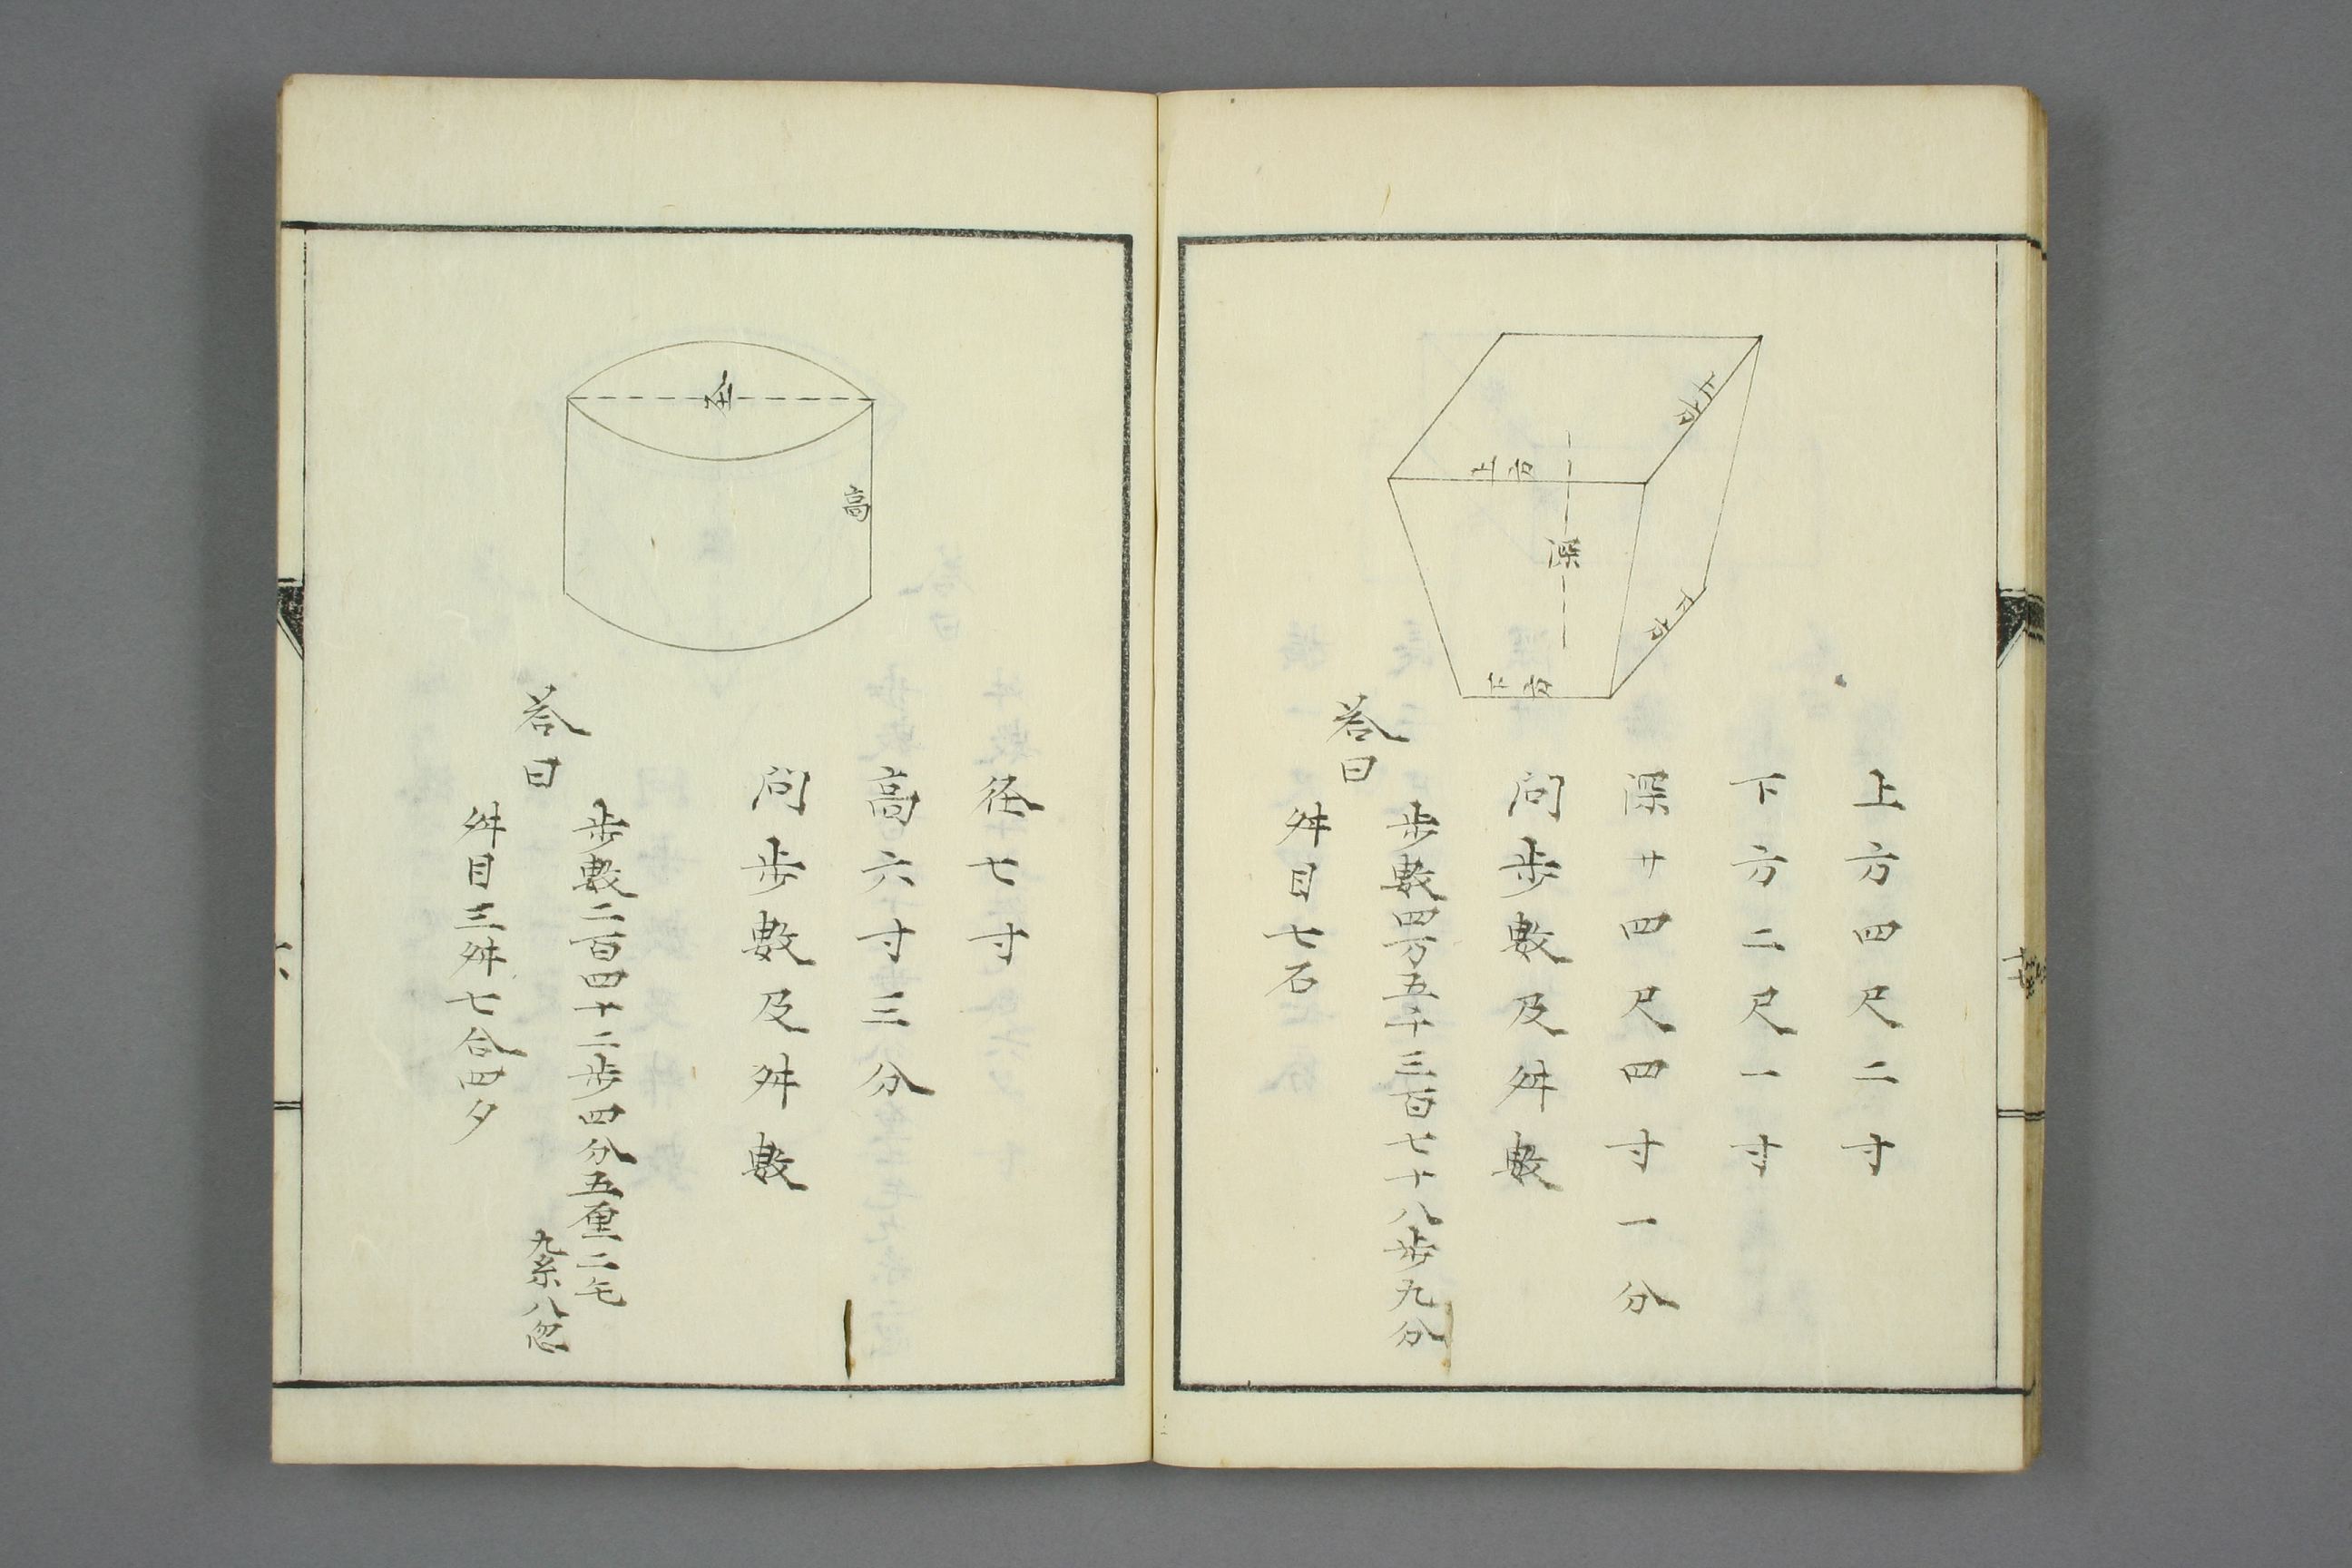 上方
上方
深
下方
下方
上方四尺二寸
下方二尺一寸
深サ四尺四寸一分
問歩數及舛數
答曰
歩數四万五千三百七十八歩九分
舛目七石
径
高
径七寸
高六寸三分
問歩數及舛數
答曰
歩數二百四十二歩四分五厘二毛
九糸八忽
舛目三舛七合四夕